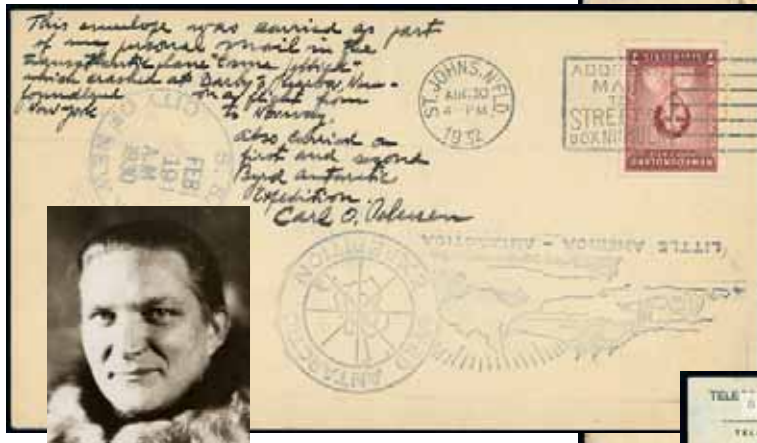 This envelope was carried as part
of my personal mail in the
transatlantic plane
which crashed at Darby's Harbor, New-
foundland on a flight from
New York to Norway.
Also carried on
first and second
Byrd Antarctic
Expedition.
Carl O. Petersen
ST. JOHN'S, N'FLD.
AUG 30
4 PM
1932
MA
TO
STREE
BOX N
CITY OF NEW
FEB
191
A.M
1930
NEWFOUNDLAND
LITTLE AMERICA - ANTARCTICA
ANTARCTIC EXPEDITION
TELE